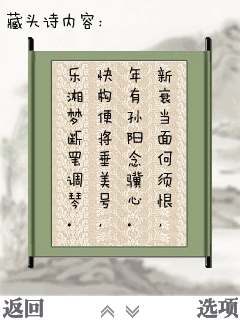 藏头诗内容:
新衰当面何须恨，
年有孙阳念骥心。
快构便将垂美号，
乐湘梦断罢调琴。
返回
选项